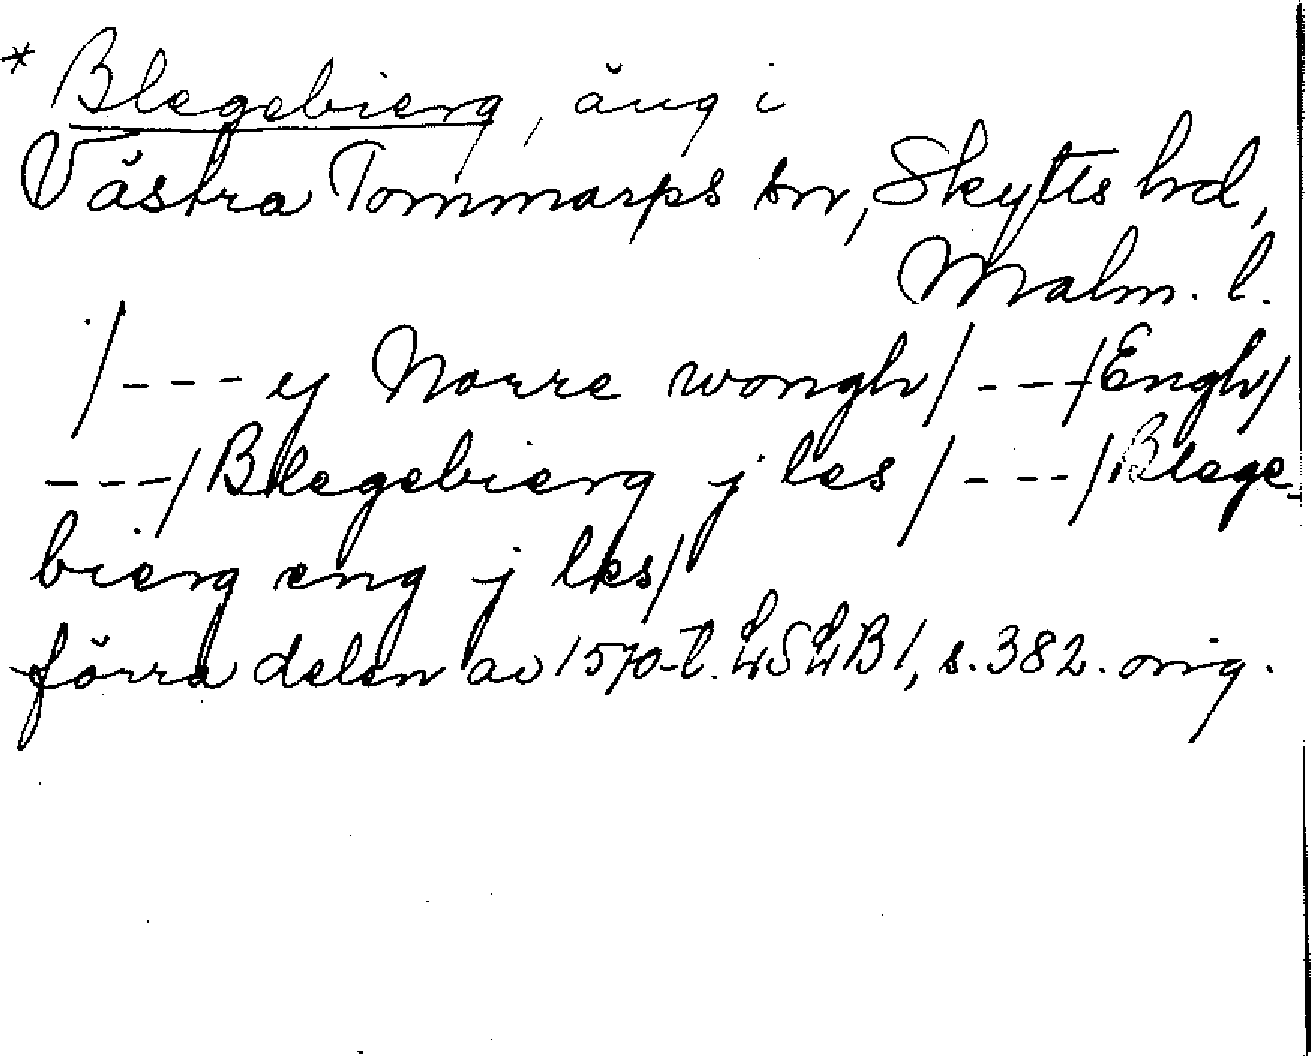 * Blegebierg, äng i
Västra Tommarps sn, Skytts hd,
Malm. l.
/---ij Norre wongh/---/Engh/
---/Blegebierg j les/---/Blege-
bierg eng j lks/
förra delen av 1570-t. LSLB1, s. 382. orig.